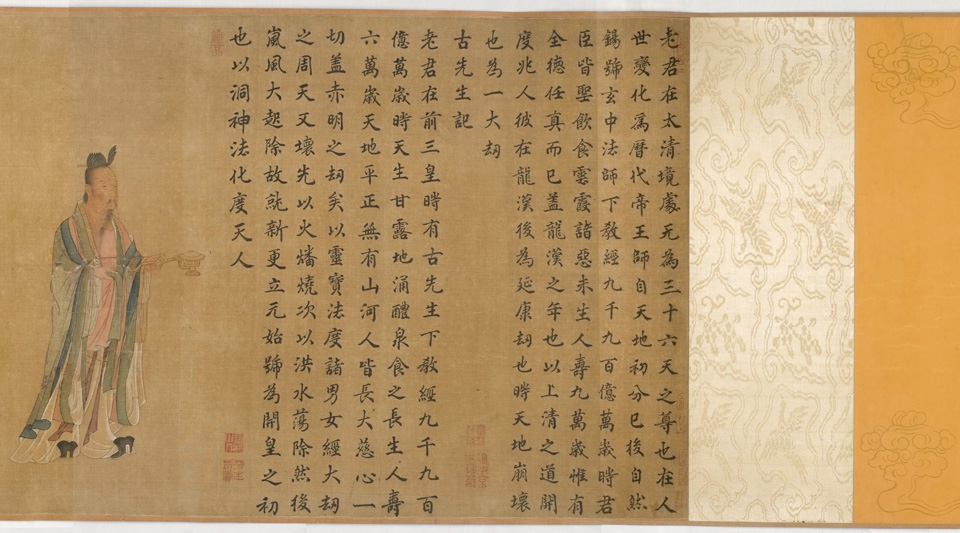 老君在太清境處无為三十六天之尊也在人
世變化為曆代帝王師自天地初分已後自然
錫號玄中法師下教經九千九百億萬歲時君
臣皆聖飲食雲霞諸惡未生人壽九萬歲惟有
全德任真而已蓋龍漢之年也以上清之道開
度兆人彼在龍漢後為延康劫也時天地崩壞
也為一大劫
古先生記
老君在前三皇時有古先生下教經九千九百
億萬歲時天生甘露地涌醴泉食之長生人壽
六萬歲天地平正無有山河人皆長大慈心一
切蓋赤明之劫矣以靈寶法度諸男女經大劫
之周天又壞先以火燔燒次以洪水蕩除然後
嵐風大起除故就新更立元始號為開皇之初
也以洞神法化度天人